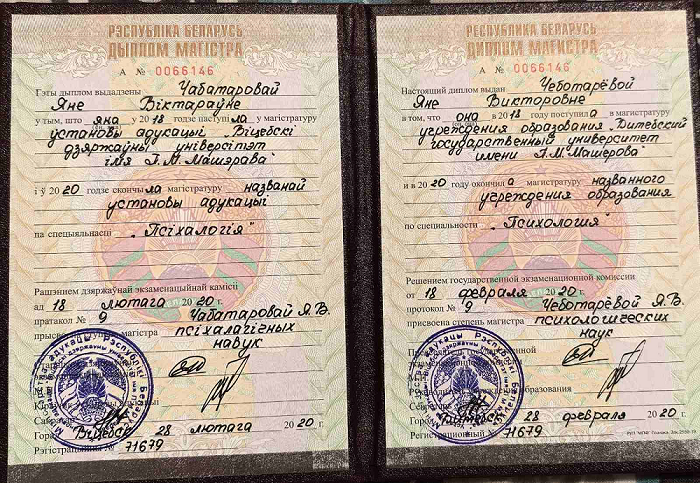 РЭСПУБЛІКА БЕЛАРУСЬ
ДЫПЛОМ МАГІСТРА
А № 0066146
Гэты дыплом выдадзены Чабатаровай
Яне Віктараўне
у тым, што яна у 2018 годзе наступіла у магістратуру
установы адукацыі „Віцебскі
дзяржаўны універсітэт
імя П.М. Машэрава"
і ў 2020 годзе скончыла магістратуру названай
установы адукацыі
па спецыяльнасці „Псіхалогія"
Рашэннем дзяржаўнай экзаменацыйнай камісіі
ад 18 лютага 2020 г.
пратакол № 9 Чабатаровай Я.В.
ступень магістра псіхалагічных
навук
Віцебск 28 лютага 2020 г.
Рэгістрацыйны № 71679
РЕСПУБЛИКА БЕЛАРУСЬ
ДИПЛОМ МАГИСТРА
А № 0066146
Настоящий диплом выдан Чеботарёвой
Яне Викторовне
в том, что она в 2018 году поступила в магистратуру
учреждения образования „Витебский
государственный университет
имени П.М. Машерова"
и в 2020 году окончила магистратуру названного
учреждения образования
по специальности „Психология"
Решением государственной экзаменационной комиссии
от 18 февраля 2020 г.
протокол № 9 Чеботарёвой Я.В.
присвоена степень магистра психологических
наук
Город Витебск 28 февраля 2020 г.
Регистрационный № 71679